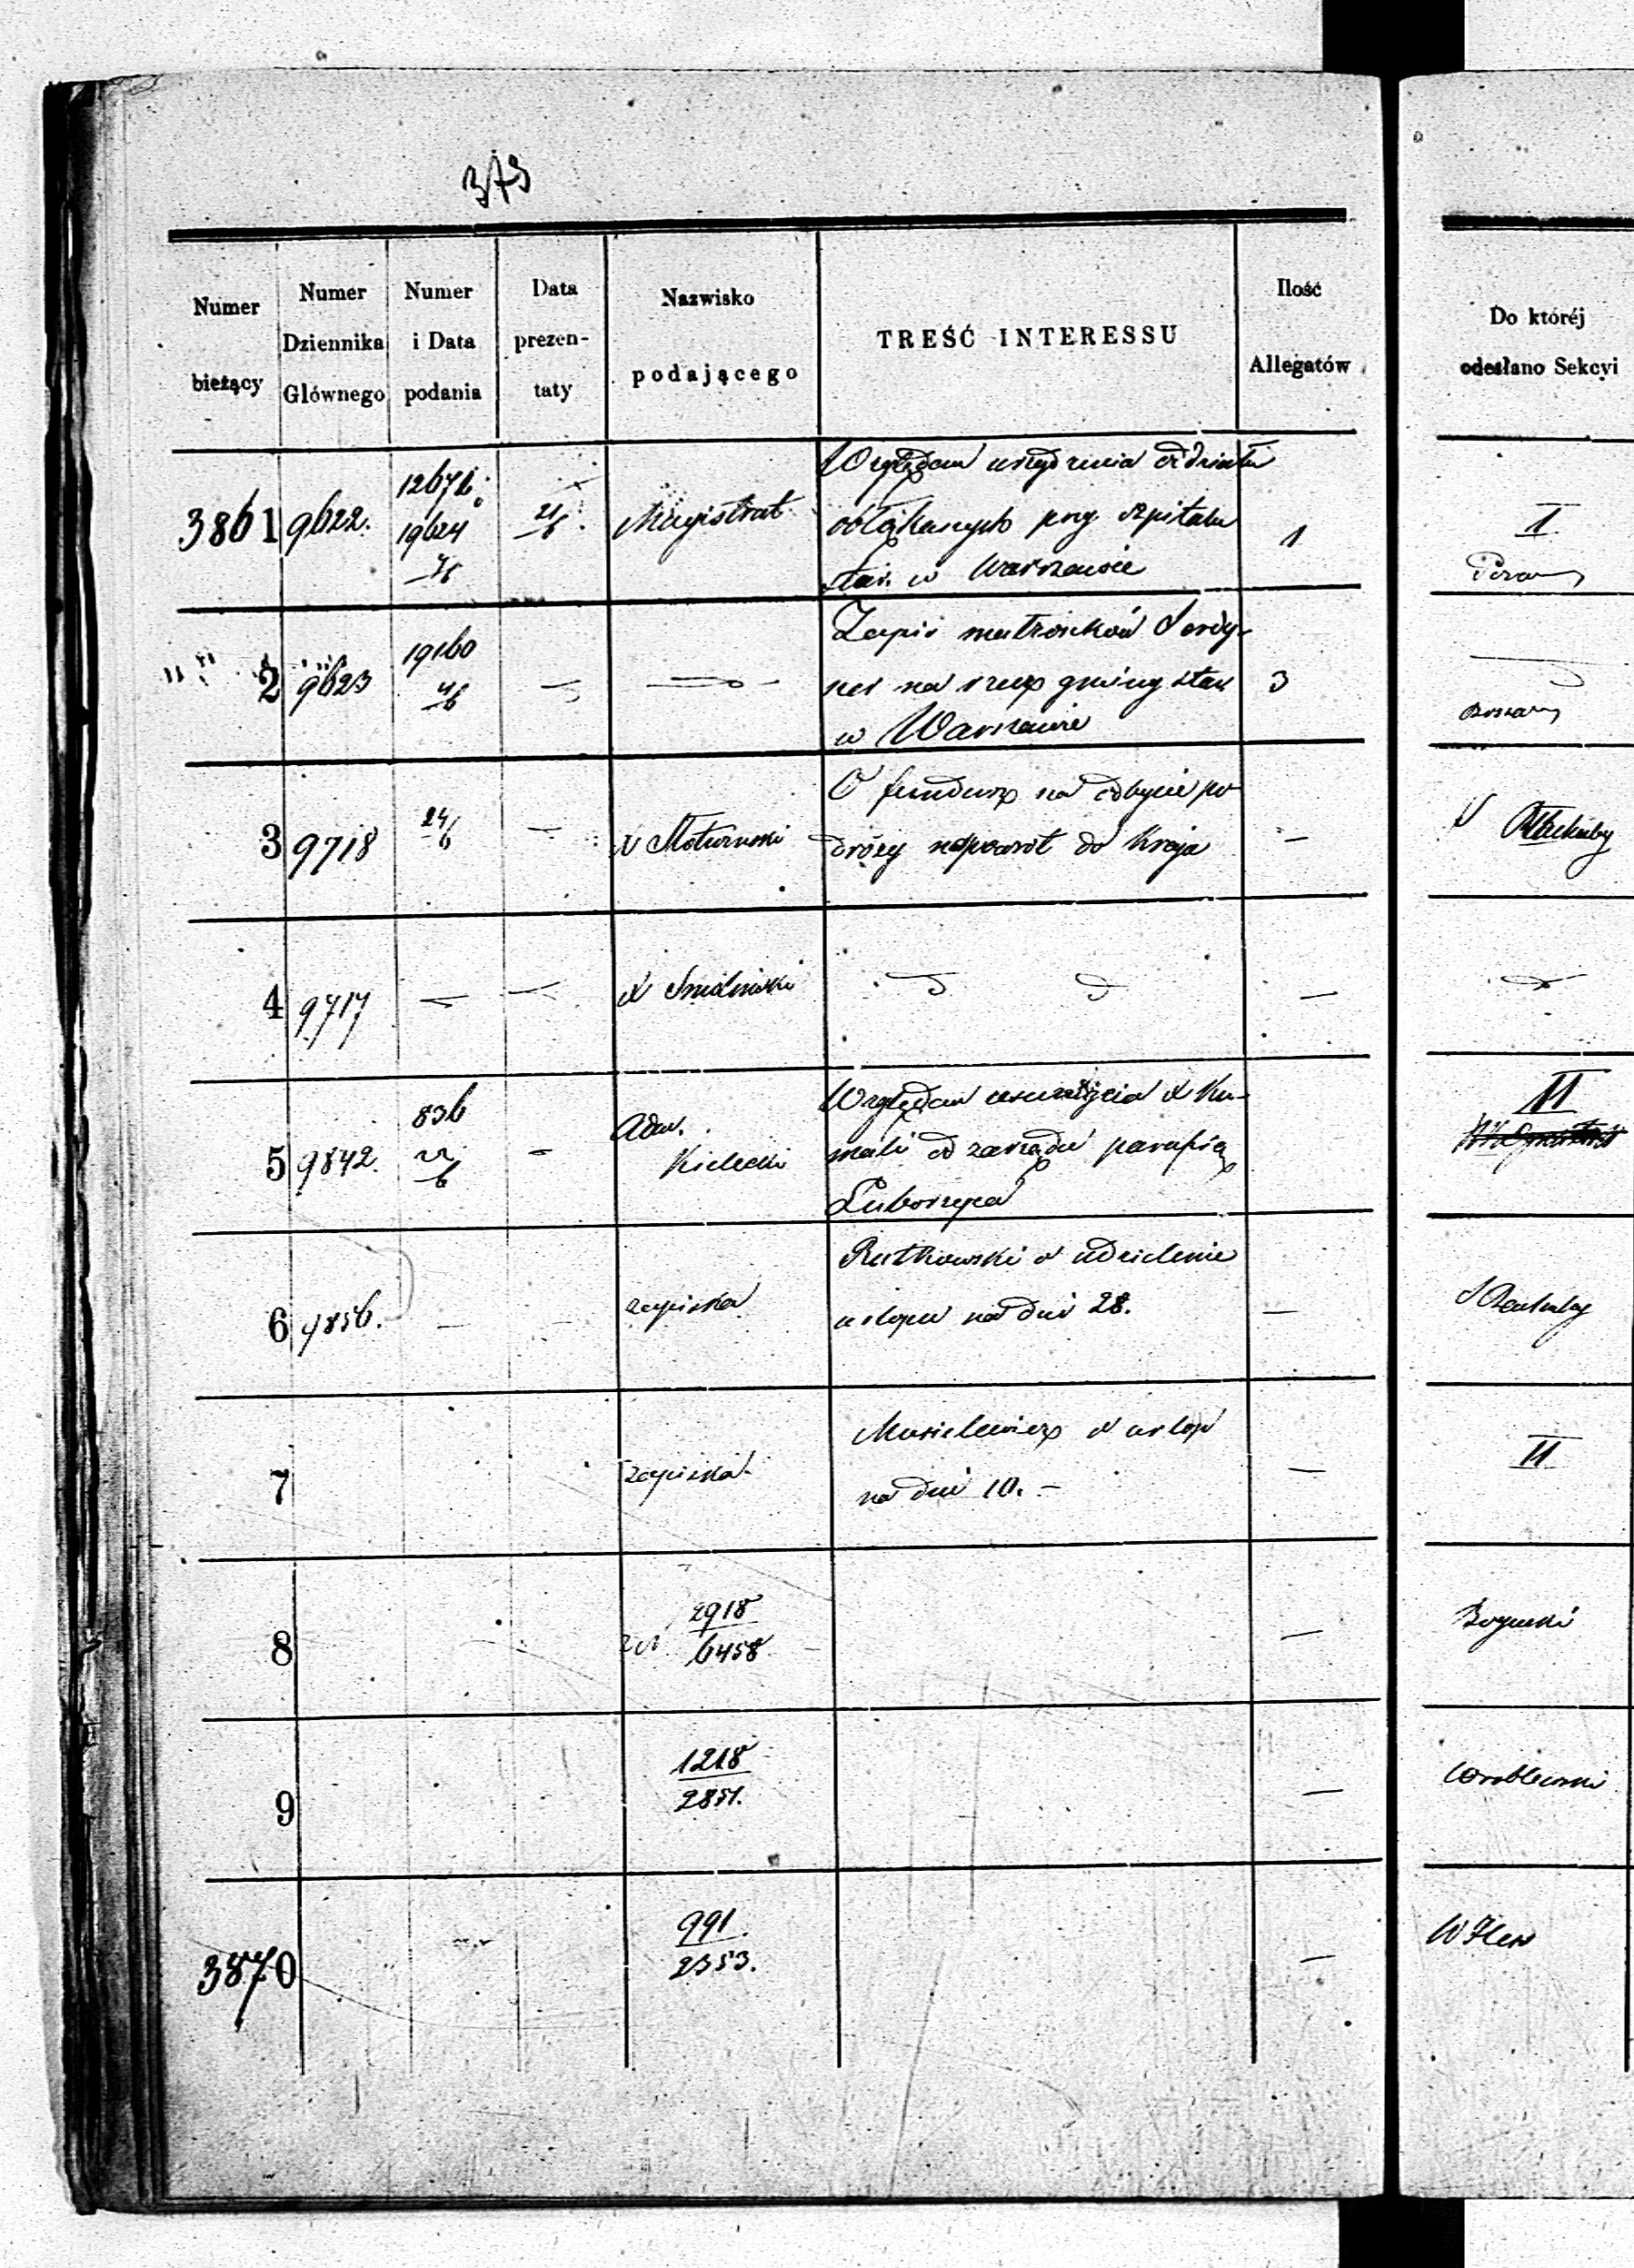 373
Numer bieżący
Numer Dziennika Głównego
Numer i Data podania
Data prezentaty
Nazwisko podającego
TREŚĆ INTERESSU
Ilość Allegatów
Do któréj odesłano Sekcyi
3861 9622. 19624 21/6 Magistrat
Względem urządzenia oddziału
obłąkanych przy szpitalu
star. w Warszawie
1
I
2 9623 19160 4/6
Zapis małżonków
na rzecz gminy star
w Warszawie
3
3 9718 24/6 X
O fundusz na odbycie po
dróży napowrót do Kraju
—
4 9717 — — X
—
5 9842. 836 22/6 - Adm.
Kielecki
Względem usunięcia X Ku-
mali od zarządu parafią
Luborzyca
II
6 9856. — zapiska
Rutkowski o udzielenie
urlopu na dni 28.
—
7 zapiska
o urlop
na dni 10. –
—
II
8 2918
6458
—
9 1218
2851.
—
Wroblewski
3870 991
2353.
—